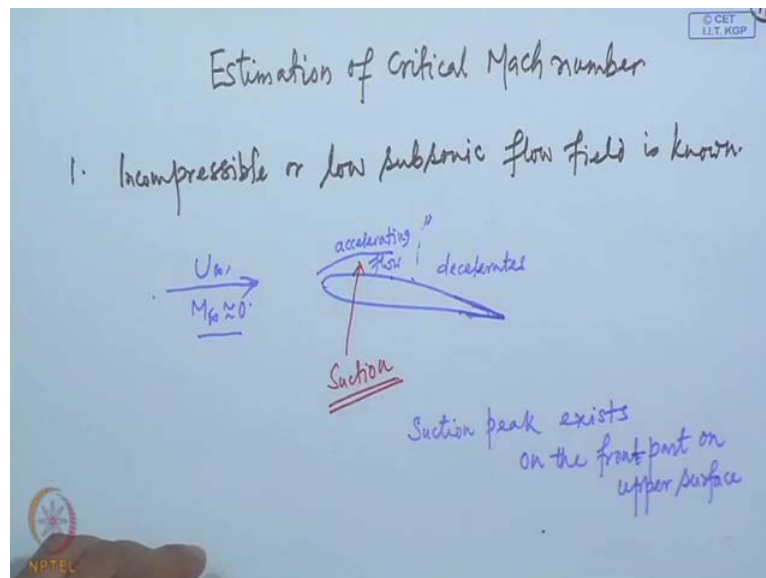 © CET
I.I.T. KGP
Estimation of Critical Mach number
1. Incompressible or low subsonic flow field is known.
U∞,
M∞ ≈ 0.
accelerating
flow
decelerates
Suction
Suction peak exists
on the front part on
upper surface
NPTEL